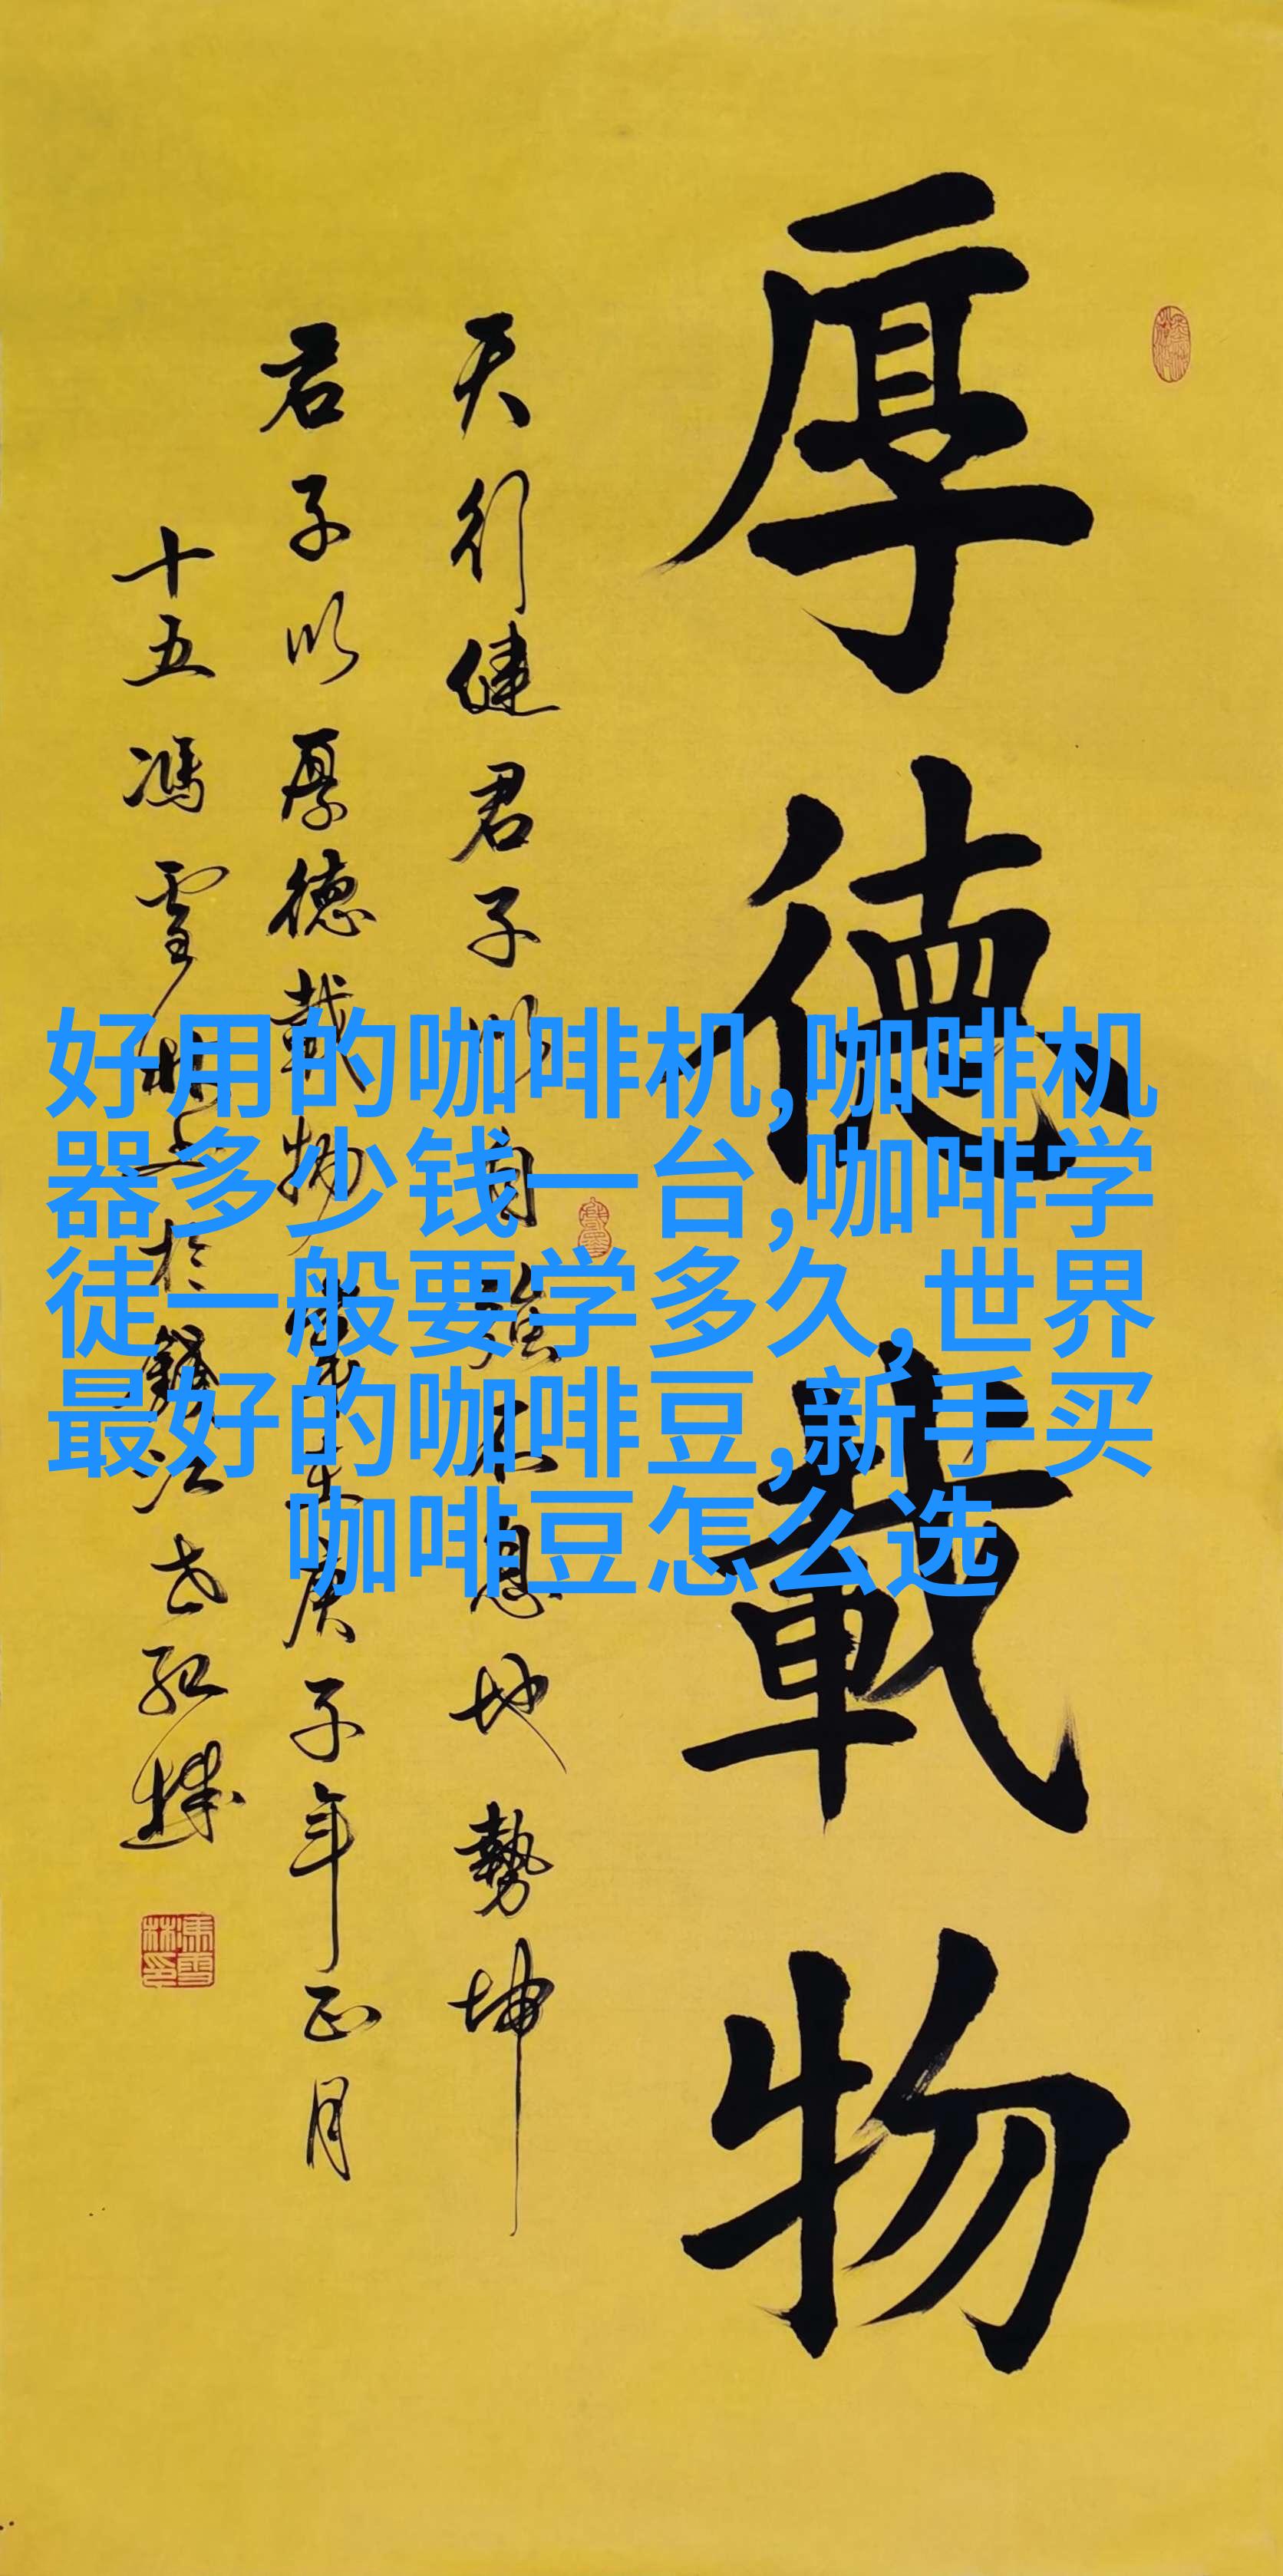 厚德載物
天行健君子以自強不息地勢坤
君子以厚德載物歲在庚子年正月
十五馮雪林書於錢江世紀城
馮雪林印
好用的咖啡机,咖啡机
器多少钱一台,咖啡学
徒一般要学多久,世界
最好的咖啡豆,新手买
咖啡豆怎么选